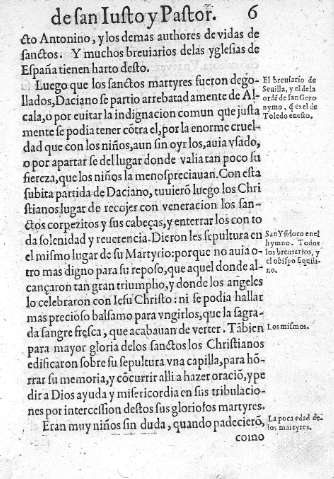 de san Iusto y Pastor. 6
cto Antonino, y los demas authores de vidas de
sanctos. Y muchos breuiarios delas yglesias de
España tienen harto desto.
Luego que los sanctos martyres fueron dego-
llados, Daciano se partio arrebatadamente de Al-
cala, o por euitar la indignacion comun que justa
mente se podia tener cõtra el, por la enorme cruel-
dad que con los niños, aun sin oyrlos, auia vsado,
o por apartar se del lugar donde valia tan poco su
fiereza, que los niños la menospreciauan. Con esta
subita partida de Daciano, tuuierõ luego los Chri
stianos lugar de recojer con veneracion los san-
ctos corpezitos y sus cabeças, y enterrar los con to
da solenidad y reuerencia. Dieron les sepultura en
el mismo lugar de su Martyrio: porque no auia o-
tro mas digno para su reposo, que aquel donde al-
cançaron tan gran triumpho, y donde los angeles
lo celebraron con Iesu Christo: ni se podia hallar
mas precioso balsamo para vngirlos, que la sagra-
da sangre fresca, que acabauan de verter. Tãbien
para mayor gloria delos sanctos los Christianos
edificaron sobre su sepultura vna capilla, para hõ-
rrar su memoria, y cõcurrir alli a hazer oraciõ, y pe
dir a Dios ayuda y misericordia en sus tribulacio-
nes por intercession destos sus gloriosos martyres.
Eran muy niños sin duda, quando padecierõ,
como
El breuiario de
Seuilla, y el dela
ordẽ de san Gero
nymo, q̃ es el de
Toledo en esto.
San Ysidoro en el
hymno. Todos
los breuiarios, y
el obispo Equili-
no.
Los mismos.
La poca edad de
los martyres.